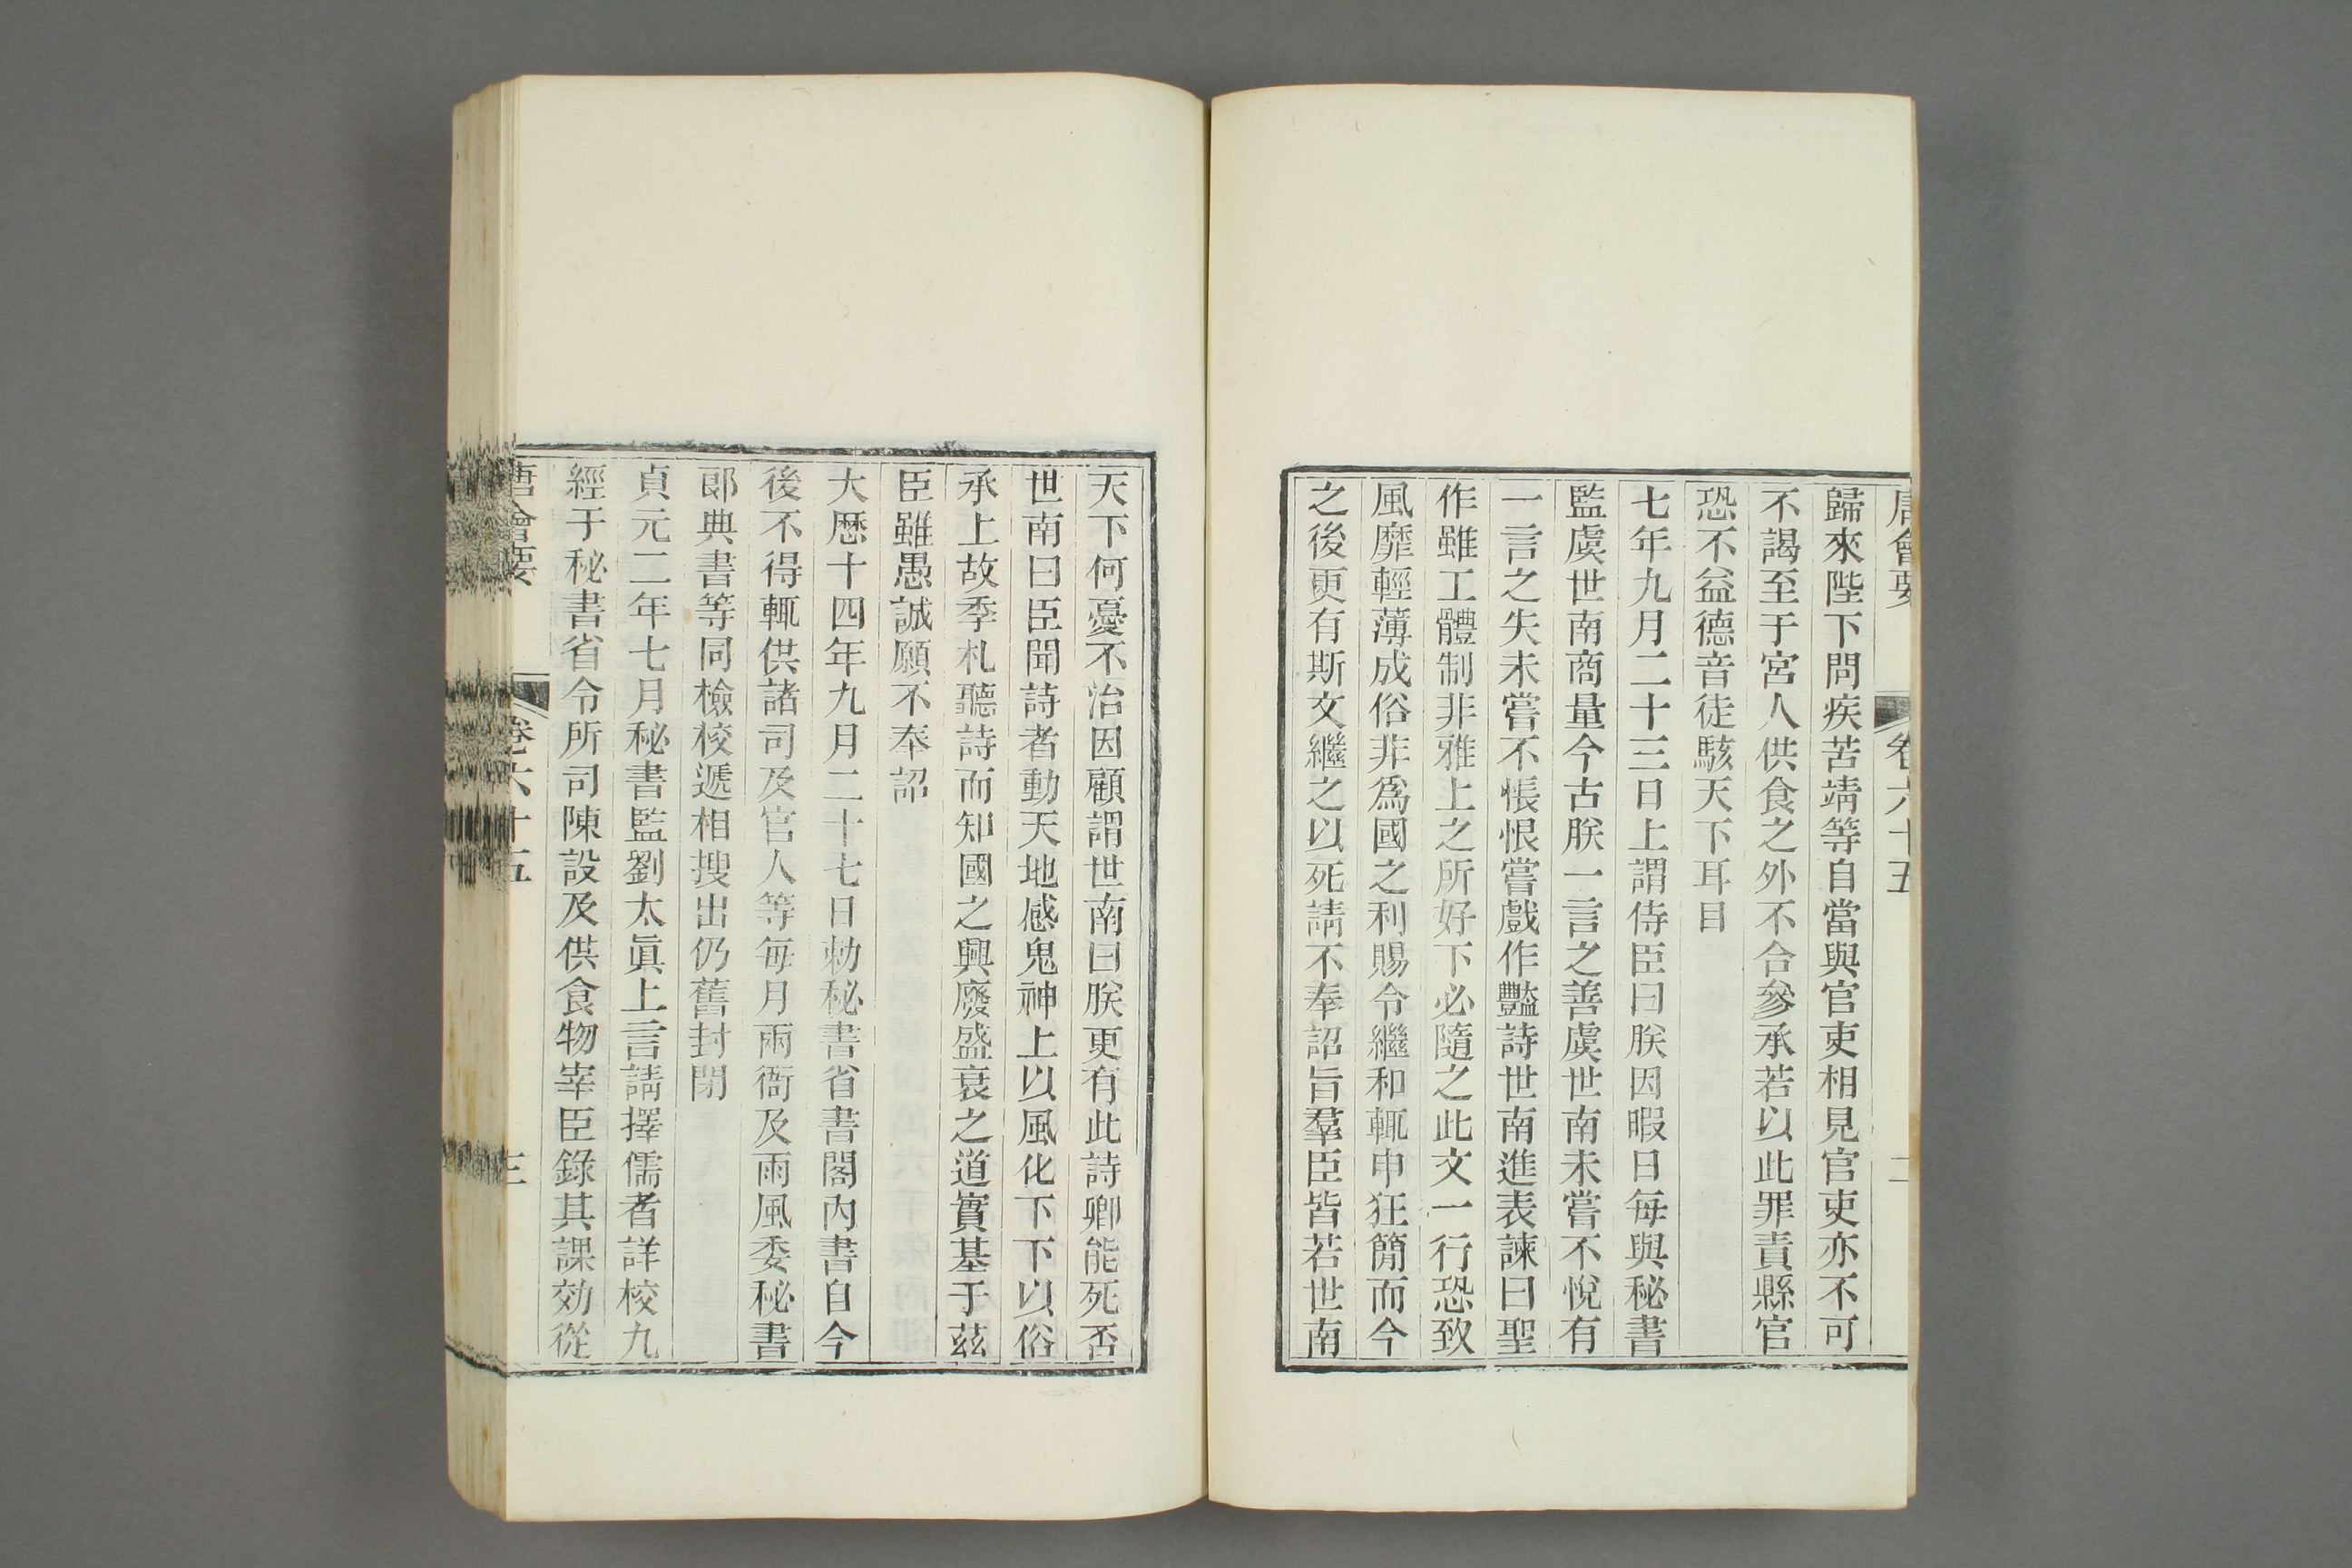 唐會要 卷六十五 二
歸來陛下問疾苦靖等自當與官吏相見官吏亦不可
不謁至于宮人供食之外不合參承若以此罪責縣官
恐不益德音徒駭天下耳目
七年九月二十三日上謂侍臣曰朕因暇日每與秘書
監虞世南商量今古朕一言之善虞世南未嘗不悅有
一言之失未嘗不悵恨嘗戲作豔詩世南進表諫曰聖
作雖工體制非雅上之所好下必隨之此文一行恐致
風靡輕薄成俗非爲國之利賜令繼和輒申狂簡而今
之後更有斯文繼之以死請不奉詔旨羣臣皆若世南
天下何憂不治因顧謂世南曰朕更有此詩卿能死否
世南曰臣聞詩者動天地感鬼神上以風化下下以俗
承上故季札聽詩而知國之興廢盛衰之道實基于茲
臣雖愚誠願不奉詔
大歷十四年九月二十七日勅秘書省書閣內書自今
後不得輒供諸司及官人等每月兩衙及雨風委秘書
郞典書等同檢校遞相搜出仍舊封閉
貞元二年七月秘書監劉太眞上言請擇儒者詳校九
經于秘書省令所司陳設及供食物宰臣錄其課効從
唐會要 卷六十五 三